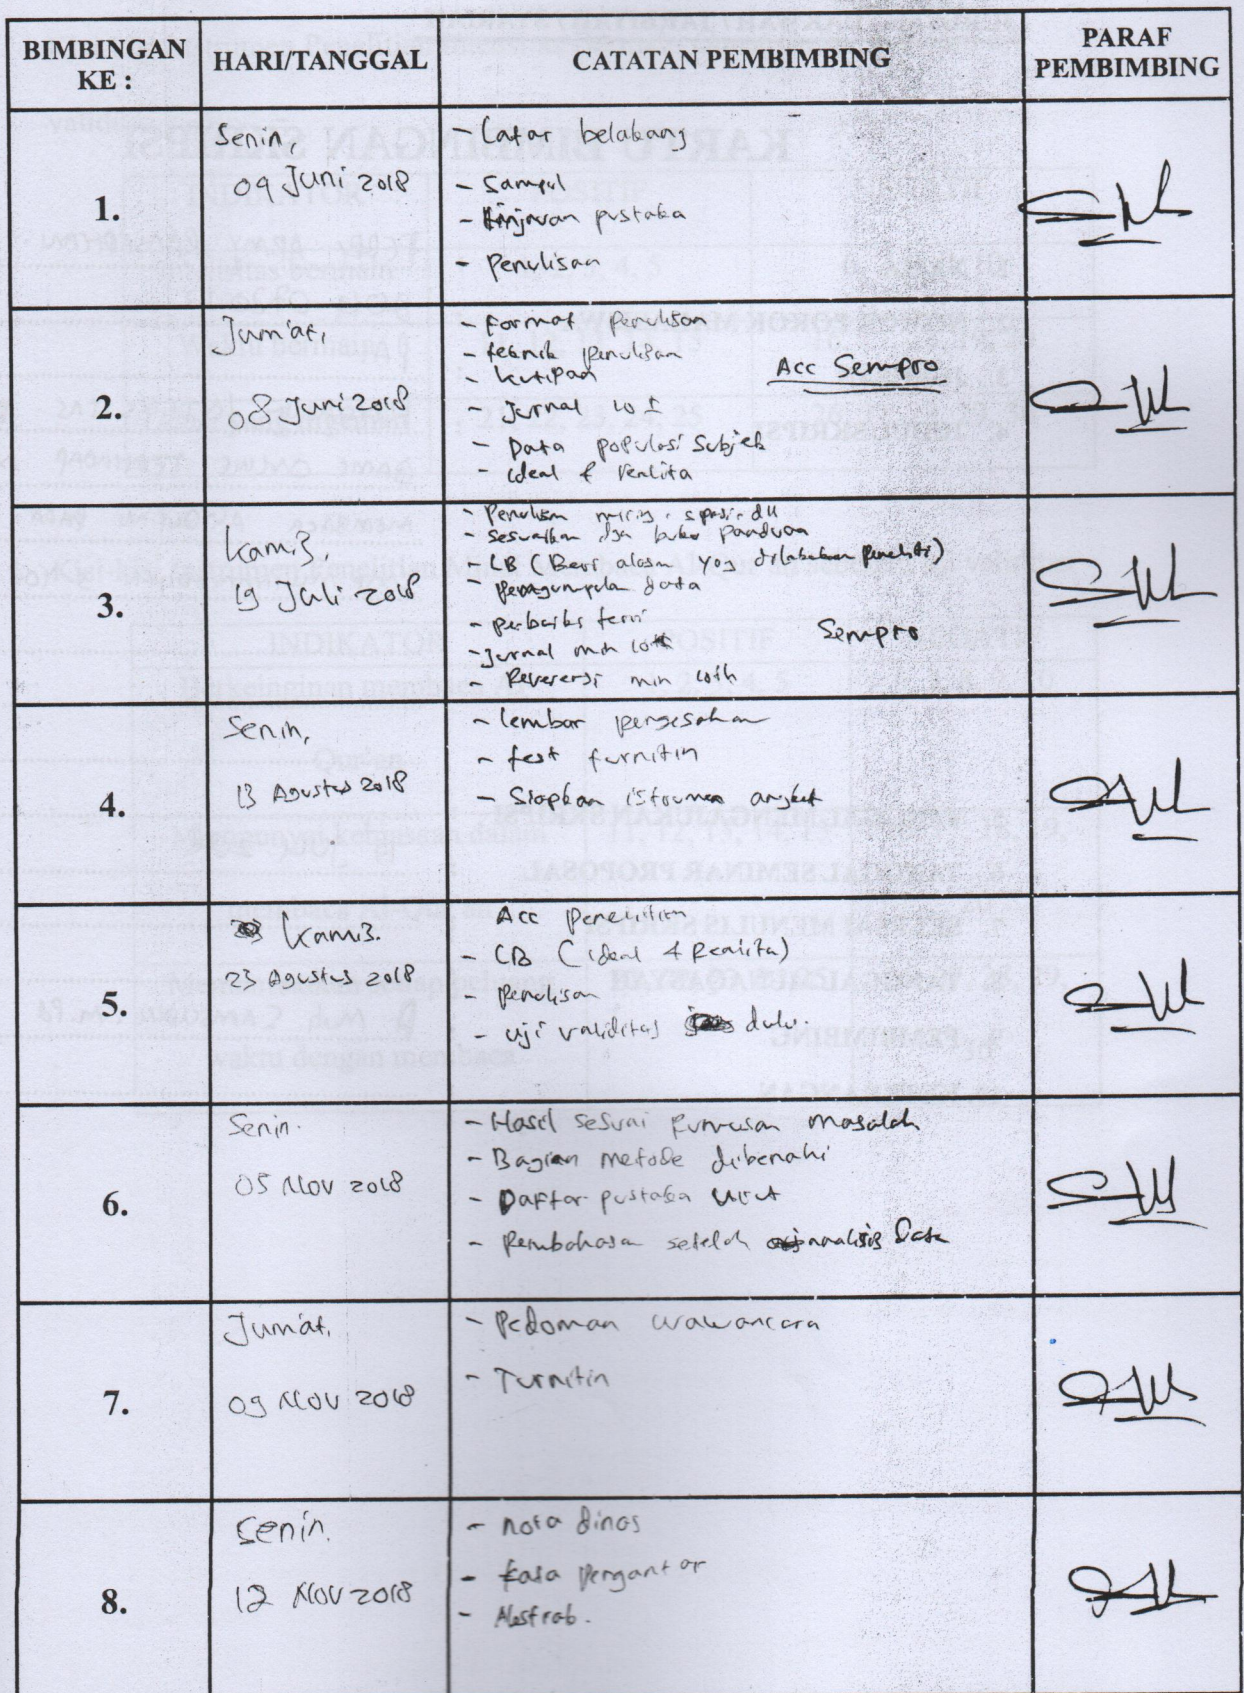 BIMBINGAN KE : HARI/TANGGAL CATATAN PEMBIMBING PARAF PEMBIMBING
1.
Senin,
04 Juni 2018
- Latar belakang
- Sampul
- Tinjauan pustaka
- Penulisan
2.
Jum'at,
08 Juni 2018
- Format penulisan
- teknik penulisan
- kutipan
Acc Sempro
- Jurnal
- Data populasi subjek
- ideal & realita
3.
Kamis,
19 Juli 2018
- Penulisan miring, spasi dll
- sesuaikan dgn buku panduan
- LB (Beri alasan yog dilakukan peneliti)
- pengumpulan data
- perbaiki teori
Sempro
- Jurnal min
Reverensi min
4.
Senin,
13 Agustus 2018
- lembar pengesahan
- test turnitin
- Siapkan istrumen angket
5.
Kamis.
23 Agustus 2018
Acc penelitian
- LB (ideal & Realita)
- Penulisan
- uji validitas dulu.
6.
Senin.
05 Nov 2018
- Hasil sesuai rumusan masalah
- Bagian metode dibenahi
- Daftar pustaka urut
- Pembahasan setelah analisis Data
7.
Jum'at,
09 Nov 2018
- Pedoman wawancara
- Turnitin
8.
Senin.
12 Nov 2018
- nota dinas
- kata pengantar
- Abstrak.